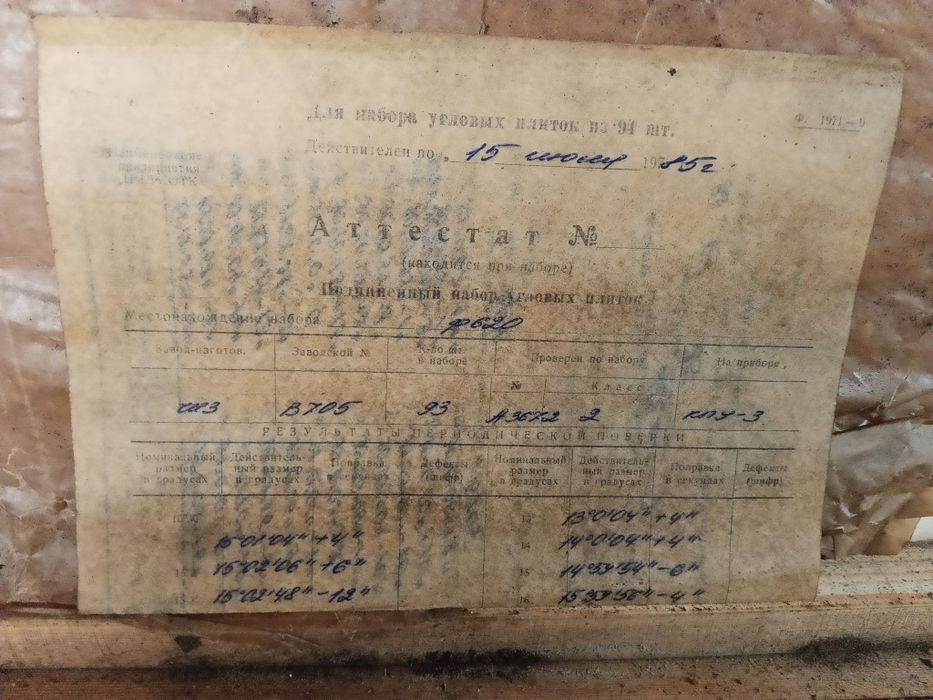 Для набора угловых плиток из 94 шт.
Ф. 1971—9
Действителен по „ 15 июня 197 85г
Наименование
предприятия
ОТК
Аттестат №
(находится при наборе)
Подчиненный набор угловых плиток
Местонахождение набора ф620
Завод-изготов. Заводской № К-во шт. в наборе Проверен по набору На приборе
№ Класс
чиз В705 93 А3672 2 КПУ-3
РЕЗУЛЬТАТЫ ПЕРИОДИЧЕСКОЙ ПОВЕРКИ
Номинальный размер в градусах Действительный размер в градусах Поправка в секундах Дефекты (шифр) Номинальный размер в градусах Действительный размер в градусах Поправка в секундах Дефекты (шифр)
13 13°0'04" +4"
15°01'04" +4" 14 14°0'04" +4"
15°02'06" +6" 15 14°59'54" -6"
15°02'48" -12" 16 15°59'56" -4"